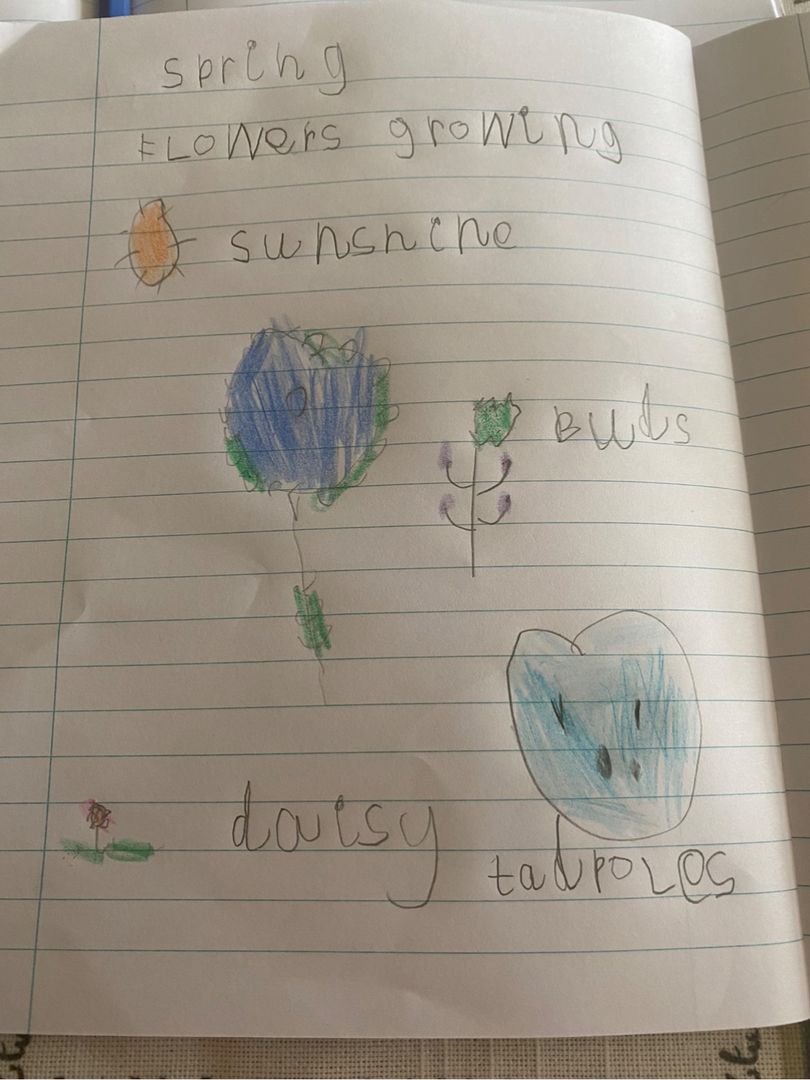 spring
FLOWers growing
sunshine
Buds
daisy
tadpoLes